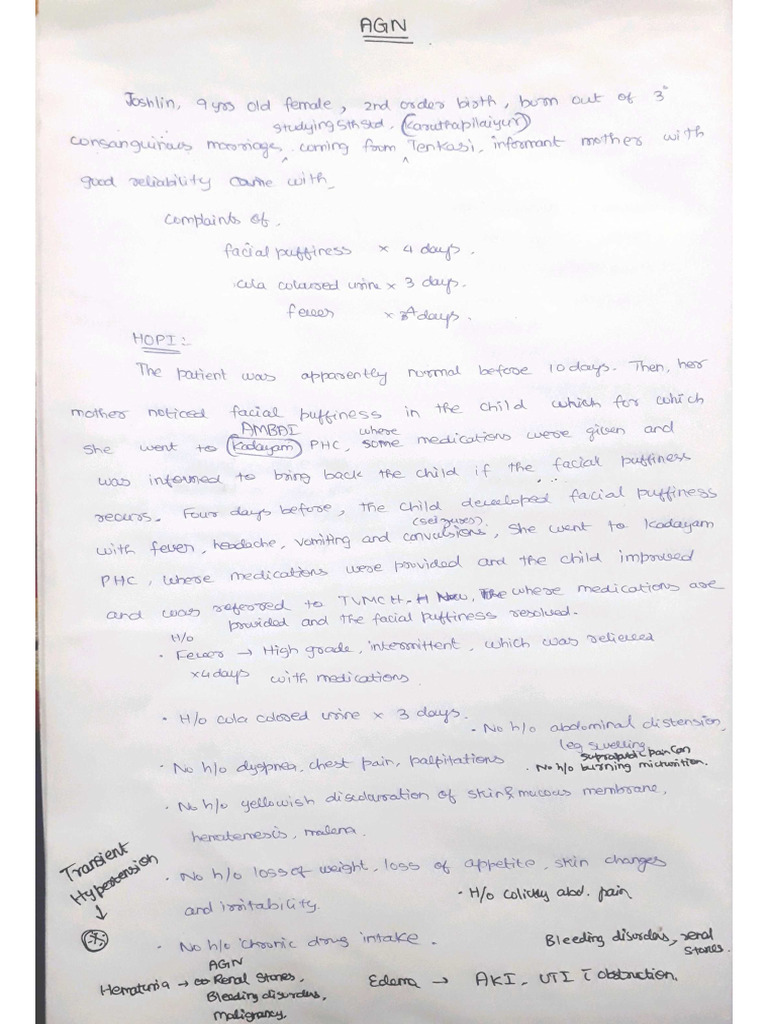 AGN
Joshlin, 9 yrs old female, 2nd order birth, burn out of 3°
studying 5th std, (Karuthapilaiyur)
consanguinous marriage, coming from Tenkasi, informant mother with
good reliability came with
complaints of.
facial puffiness × 4 days.
cula coloured urine × 3 days.
fever × 4 days.
HOPI:-
The patient was apparently normal before 10 days. Then, her
mother noticed facial puffiness in the child which for which
AMBAI where
she went to (Kadayam) PHC, some medications were given and
was informed to bring back the child if the facial puffiness
recurs. Four days before, the child developed facial puffiness
(seizures).
with fever, headache, vomiting and convulsions, she went to Kadayam
PHC, where medications were provided and the child improved
and was referred to TVMCH. Now, where medications are
provided and the facial puffiness resolved.
H/o
• Fever → High grade, intermittent, which was relieved
×4days with medications.
• H/o cula colored urine × 3 days.
• No h/o abdominal distension,
leg swelling
suprapubic pain
• No h/o dyspnea, chest pain, palpitations
• No h/o burning micturition.
• No h/o yellowish discolouration of skin & mucous membrane,
hematenesis, malena.
Transient
Hypertension
↓
• No h/o loss of weight, loss of appetite, skin changes
and irritability.
• H/o colicky abd. pain
• No h/o chronic drug intake.
Bleeding disorders, renal
stones.
AGN
Hematuria → Renal Stones,
Bleeding disorders,
malignancy.
Edema → AKI, UTI c̄ obstruction.